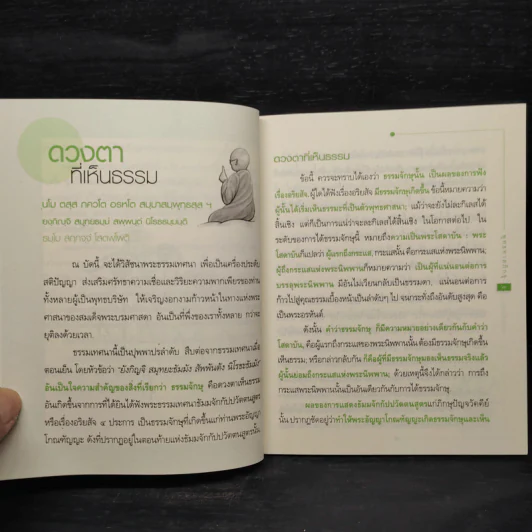 ดวงตา
ที่เห็นธรรม
นโม ตสฺส ภควโต อรหโต สมฺมาสมฺพุทธสฺส ฯ
ยงฺกิญฺจิ สมุทยธมฺมํ สพฺพนฺตํ นิโรธธมฺมนฺติ
ธมฺโม สกฺกจฺจํ โสตพฺโพติ
ณ บัดนี้ จะได้วิสัชนาพระธรรมเทศนา เพื่อเป็นเครื่องประดับ
สติปัญญา ส่งเสริมศรัทธาความเชื่อและวิริยะความพากเพียรของท่าน
ทั้งหลายผู้เป็นพุทธบริษัท ให้เจริญงอกงามก้าวหน้าในทางแห่งพระ
ศาสนาของสมเด็จพระบรมศาสดา อันเป็นที่พึ่งของเราทั้งหลาย กว่าจะ
ยุติลงด้วยเวลา
ธรรมเทศนานี้เป็นปุพพาปรลำดับ สืบต่อจากธรรมเทศนาเมื่อ
ตอนเย็น โดยหัวข้อว่า 'ยังกิญจิ สมุทยะธัมมัง สัพพันตัง นิโรธะธัมมัง'
อันเป็นใจความสำคัญของสิ่งที่เรียกว่า ธรรมจักษุ คือดวงตาเห็นธรรม
อันเกิดขึ้นจากการที่ได้ยินได้ฟังพระธรรมเทศนาธัมมจักกัปปวัตตนสูตร
หรือเรื่องอริยสัจ ๔ ประการ เป็นธรรมจักษุที่เกิดขึ้นแก่ท่านพระอัญญา
โกณฑัญญะ ดังที่ปรากฏอยู่ในตอนท้ายแห่งธัมมจักกัปปวัตตนสูตรนั้น.
ดวงตาที่เห็นธรรม
ข้อนี้ ควรจะทราบได้เองว่า ธรรมจักษุนั้น เป็นผลของการฟัง
เรื่องอริยสัจ, ผู้ใดได้ฟังเรื่องอริยสัจ มีธรรมจักษุเกิดขึ้น ข้อนี้หมายความว่า
ผู้นั้นได้เริ่มเห็นธรรมะที่เป็นตัวพุทธศาสนา, แม้ว่าจะยังไม่ละกิเลสได้
สิ้นเชิง แต่ก็เป็นการแน่ว่าจะละกิเลสได้สิ้นเชิง ในโอกาสต่อไป ใน
ระดับของการได้ธรรมจักษุนี้ หมายถึงความเป็นพระโสดาบัน ; พระ
โสดาบันก็แปลว่า ผู้แรกถึงกระแส, กระแสนั้นคือกระแสแห่งพระนิพพาน;
ผู้ถึงกระแสแห่งพระนิพพานก็หมายความว่า เป็นผู้ที่แน่นอนต่อการ
บรรลุพระนิพพาน มีอันไม่เวียนกลับเป็นธรรมดา, แน่นอนต่อการ
ก้าวไปสู่คุณธรรมเบื้องหน้าเป็นลำดับๆ ไป จนกระทั่งถึงอันดับสูงสุด คือ
เป็นพระอรหันต์.
ดังนั้น คำว่าธรรมจักษุ ก็มีความหมายอย่างเดียวกันกับคำว่า
โสดาบัน, คือผู้แรกถึงกระแสของพระนิพพานนั้น ต้องมีธรรมจักษุเกิดขึ้น
เห็นธรรม; หรือกล่าวกลับกัน ก็คือผู้ที่มีธรรมจักษุมองเห็นธรรมจริงแล้ว
ผู้นั้นย่อมถึงกระแสแห่งพระนิพพาน; ด้วยเหตุนี้จึงได้กล่าวว่า การถึง
กระแสพระนิพพานนั้นเป็นอันเดียวกันกับการได้ธรรมจักษุ.
ผลของการแสดงธัมมจักกัปปวัตตนสูตรแก่ภิกษุปัญจวัคคีย์
นั้น ปรากฏชัดอยู่ว่า ทำให้พระอัญญาโกณฑัญญะเกิดธรรมจักษุและเห็น